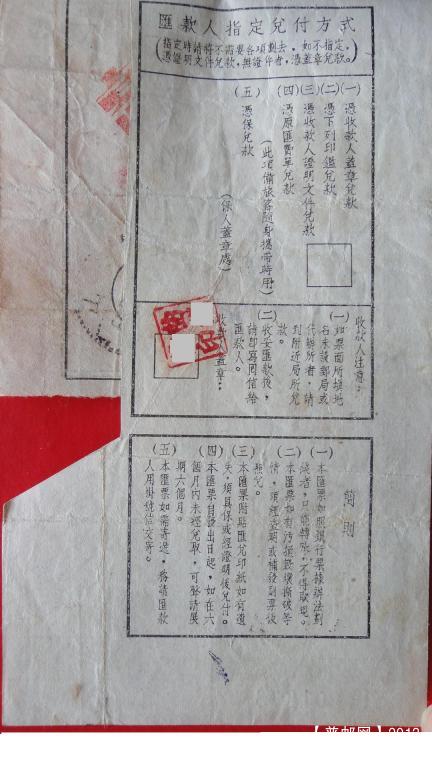 匯款人指定兌付方式
(指定時請將不需要各項劃去，如不指定，
憑證明文件兌款，無證件者，憑蓋章兌款。)
(一)憑收款人蓋章兌款
(二)憑下列印鑑兌款
(三)憑收款人證明文件兌款
(四)憑原匯費單兌款
(此項備旅客隨身攜帶時用)
(五)憑保兌款
(保人蓋章處)
收款人注意：
(一)如票面所填地
名未設郵局或
代辦所者，請
到附近局所兌
款。
(二)收妥匯款後，
請即寫回信給
匯款人。
收款人蓋章：
簡則
(一)本匯票如照銀行票據辦法劃
線者，只能轉賬，不得取現。
(二)本匯票如有污損毀壞撕破等
情，須經查明或補發副票後
兌。
(三)本匯票附貼匯兌印紙如有遺
失，須具保或經證明後兌付。
(四)本匯票自發出日起，如在六
個月內未經兌取，可聲請展
期六個月。
(五)本匯票如需寄遞，務請匯款
人用掛號信交寄。
【普邮网】2013